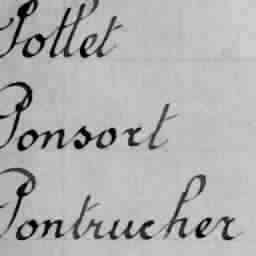 Pottet
Ponsort
Pontrucher